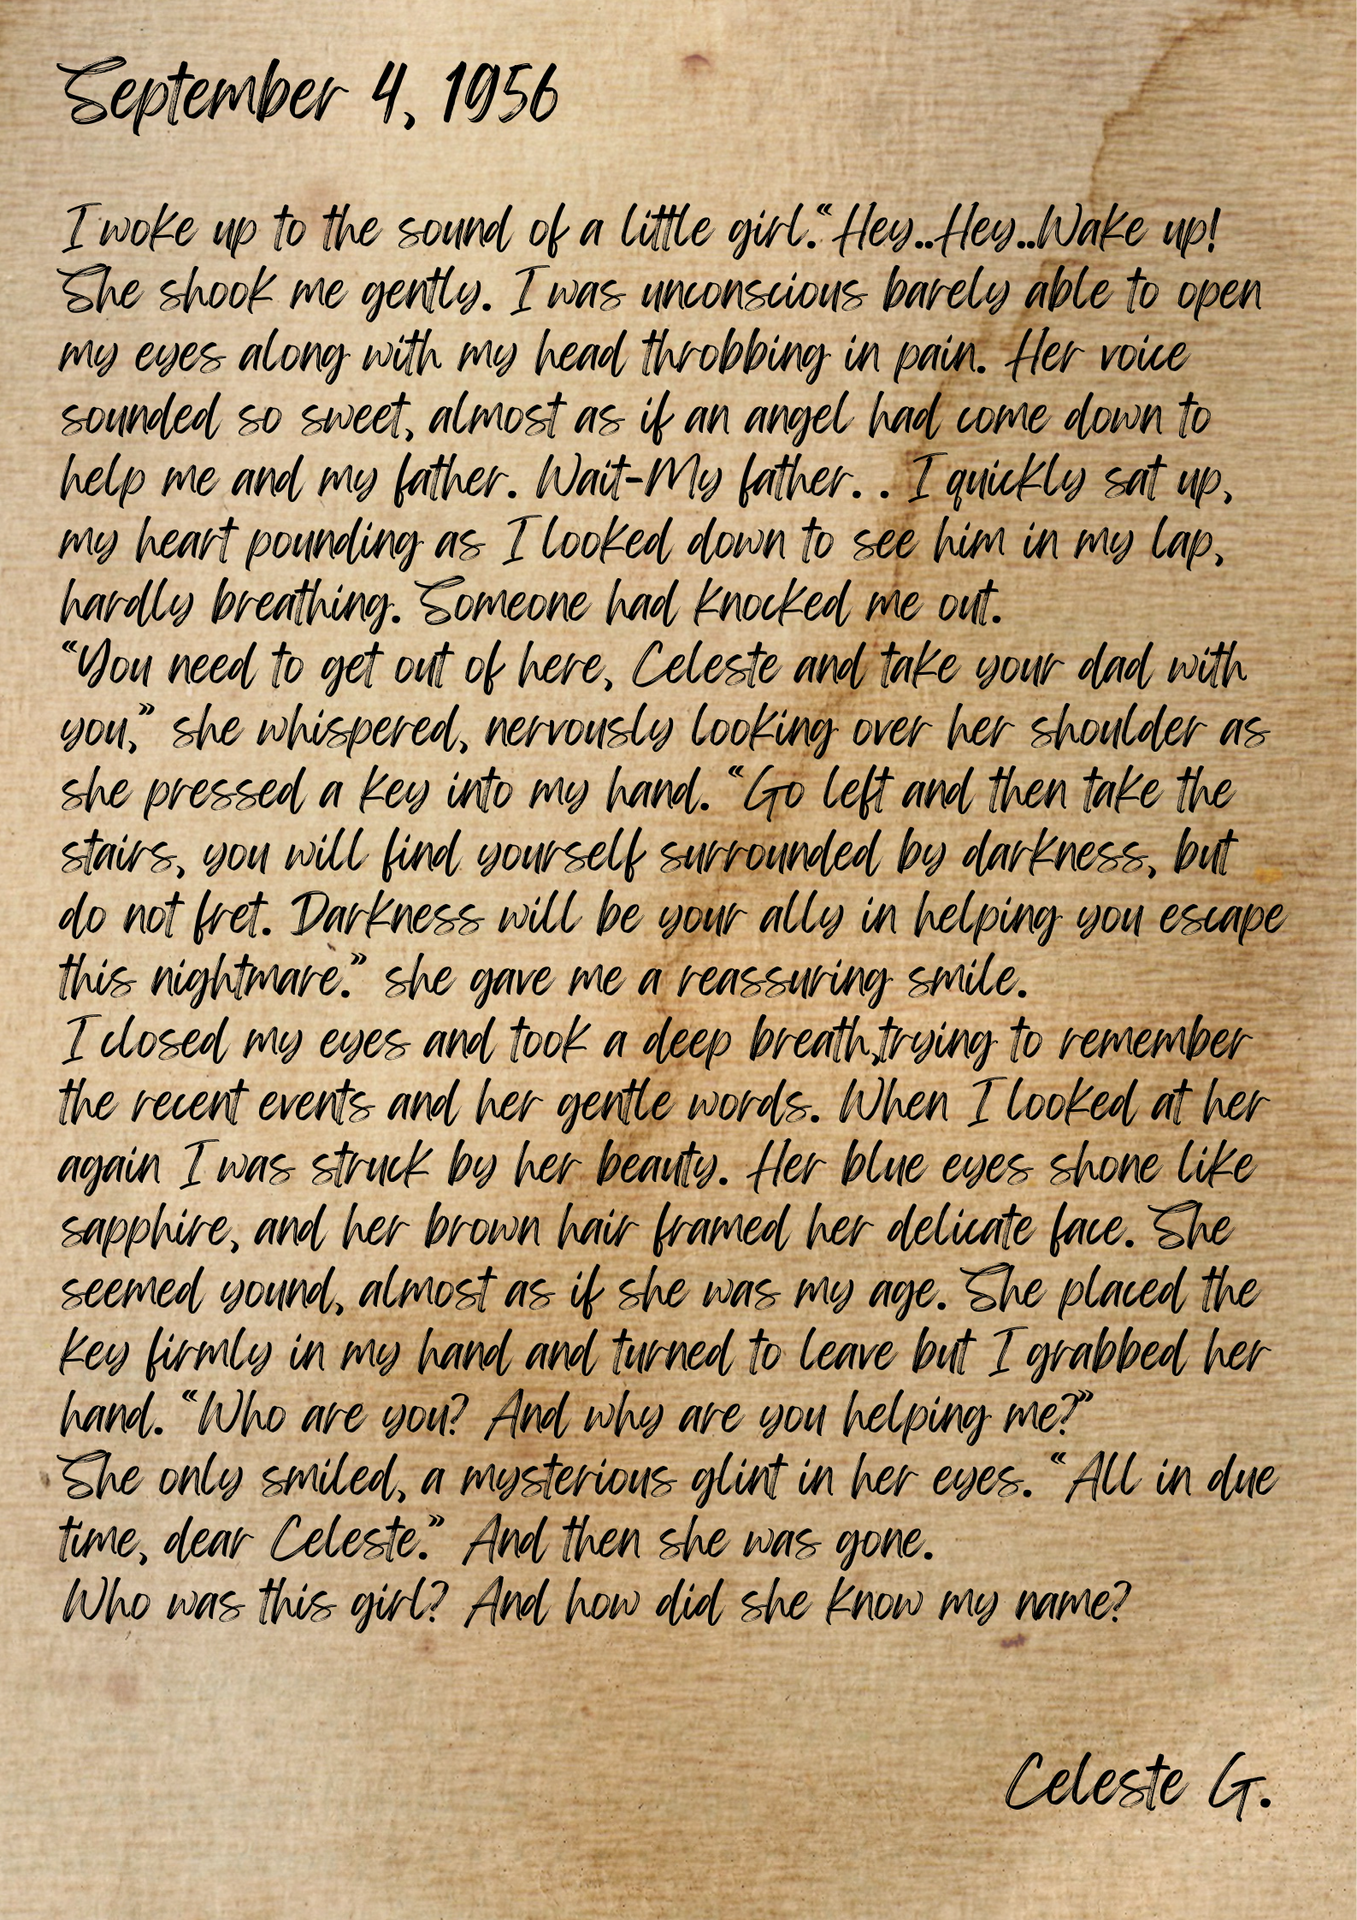 September 4, 1956
I woke up to the sound of a little girl.“Hey..Hey..Wake up!
She shook me gently. I was unconscious barely able to open
my eyes along with my head throbbing in pain. Her voice
sounded so sweet, almost as if an angel had come down to
help me and my father. Wait-My father. . I quickly sat up,
my heart pounding as I looked down to see him in my lap,
hardly breathing. Someone had knocked me out.
“You need to get out of here, Celeste and take your dad with
you,” she whispered, nervously looking over her shoulder as
she pressed a key into my hand. “Go left and then take the
stairs, you will find yourself surrounded by darkness, but
do not fret. Darkness will be your ally in helping you escape
this nightmare.” she gave me a reassuring smile.
I closed my eyes and took a deep breath,trying to remember
the recent events and her gentle words. When I looked at her
again I was struck by her beauty. Her blue eyes shone like
sapphire, and her brown hair framed her delicate face. She
seemed yound, almost as if she was my age. She placed the
key firmly in my hand and turned to leave but I grabbed her
hand. “Who are you? And why are you helping me?”
She only smiled, a mysterious glint in her eyes. “All in due
time, dear Celeste.” And then she was gone.
Who was this girl? And how did she know my name?
Celeste G.